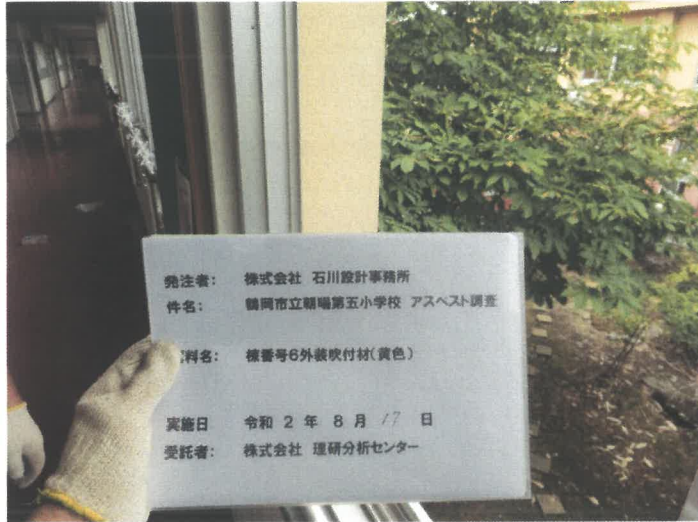 発注者: 株式会社 石川設計事務所
件名: 鶴岡市立朝暘第五小学校 アスベスト調査
料名: 棟番号6外装吹付材(黄色)
実施日 令和 2 年 8 月 17 日
受託者: 株式会社 理研分析センター